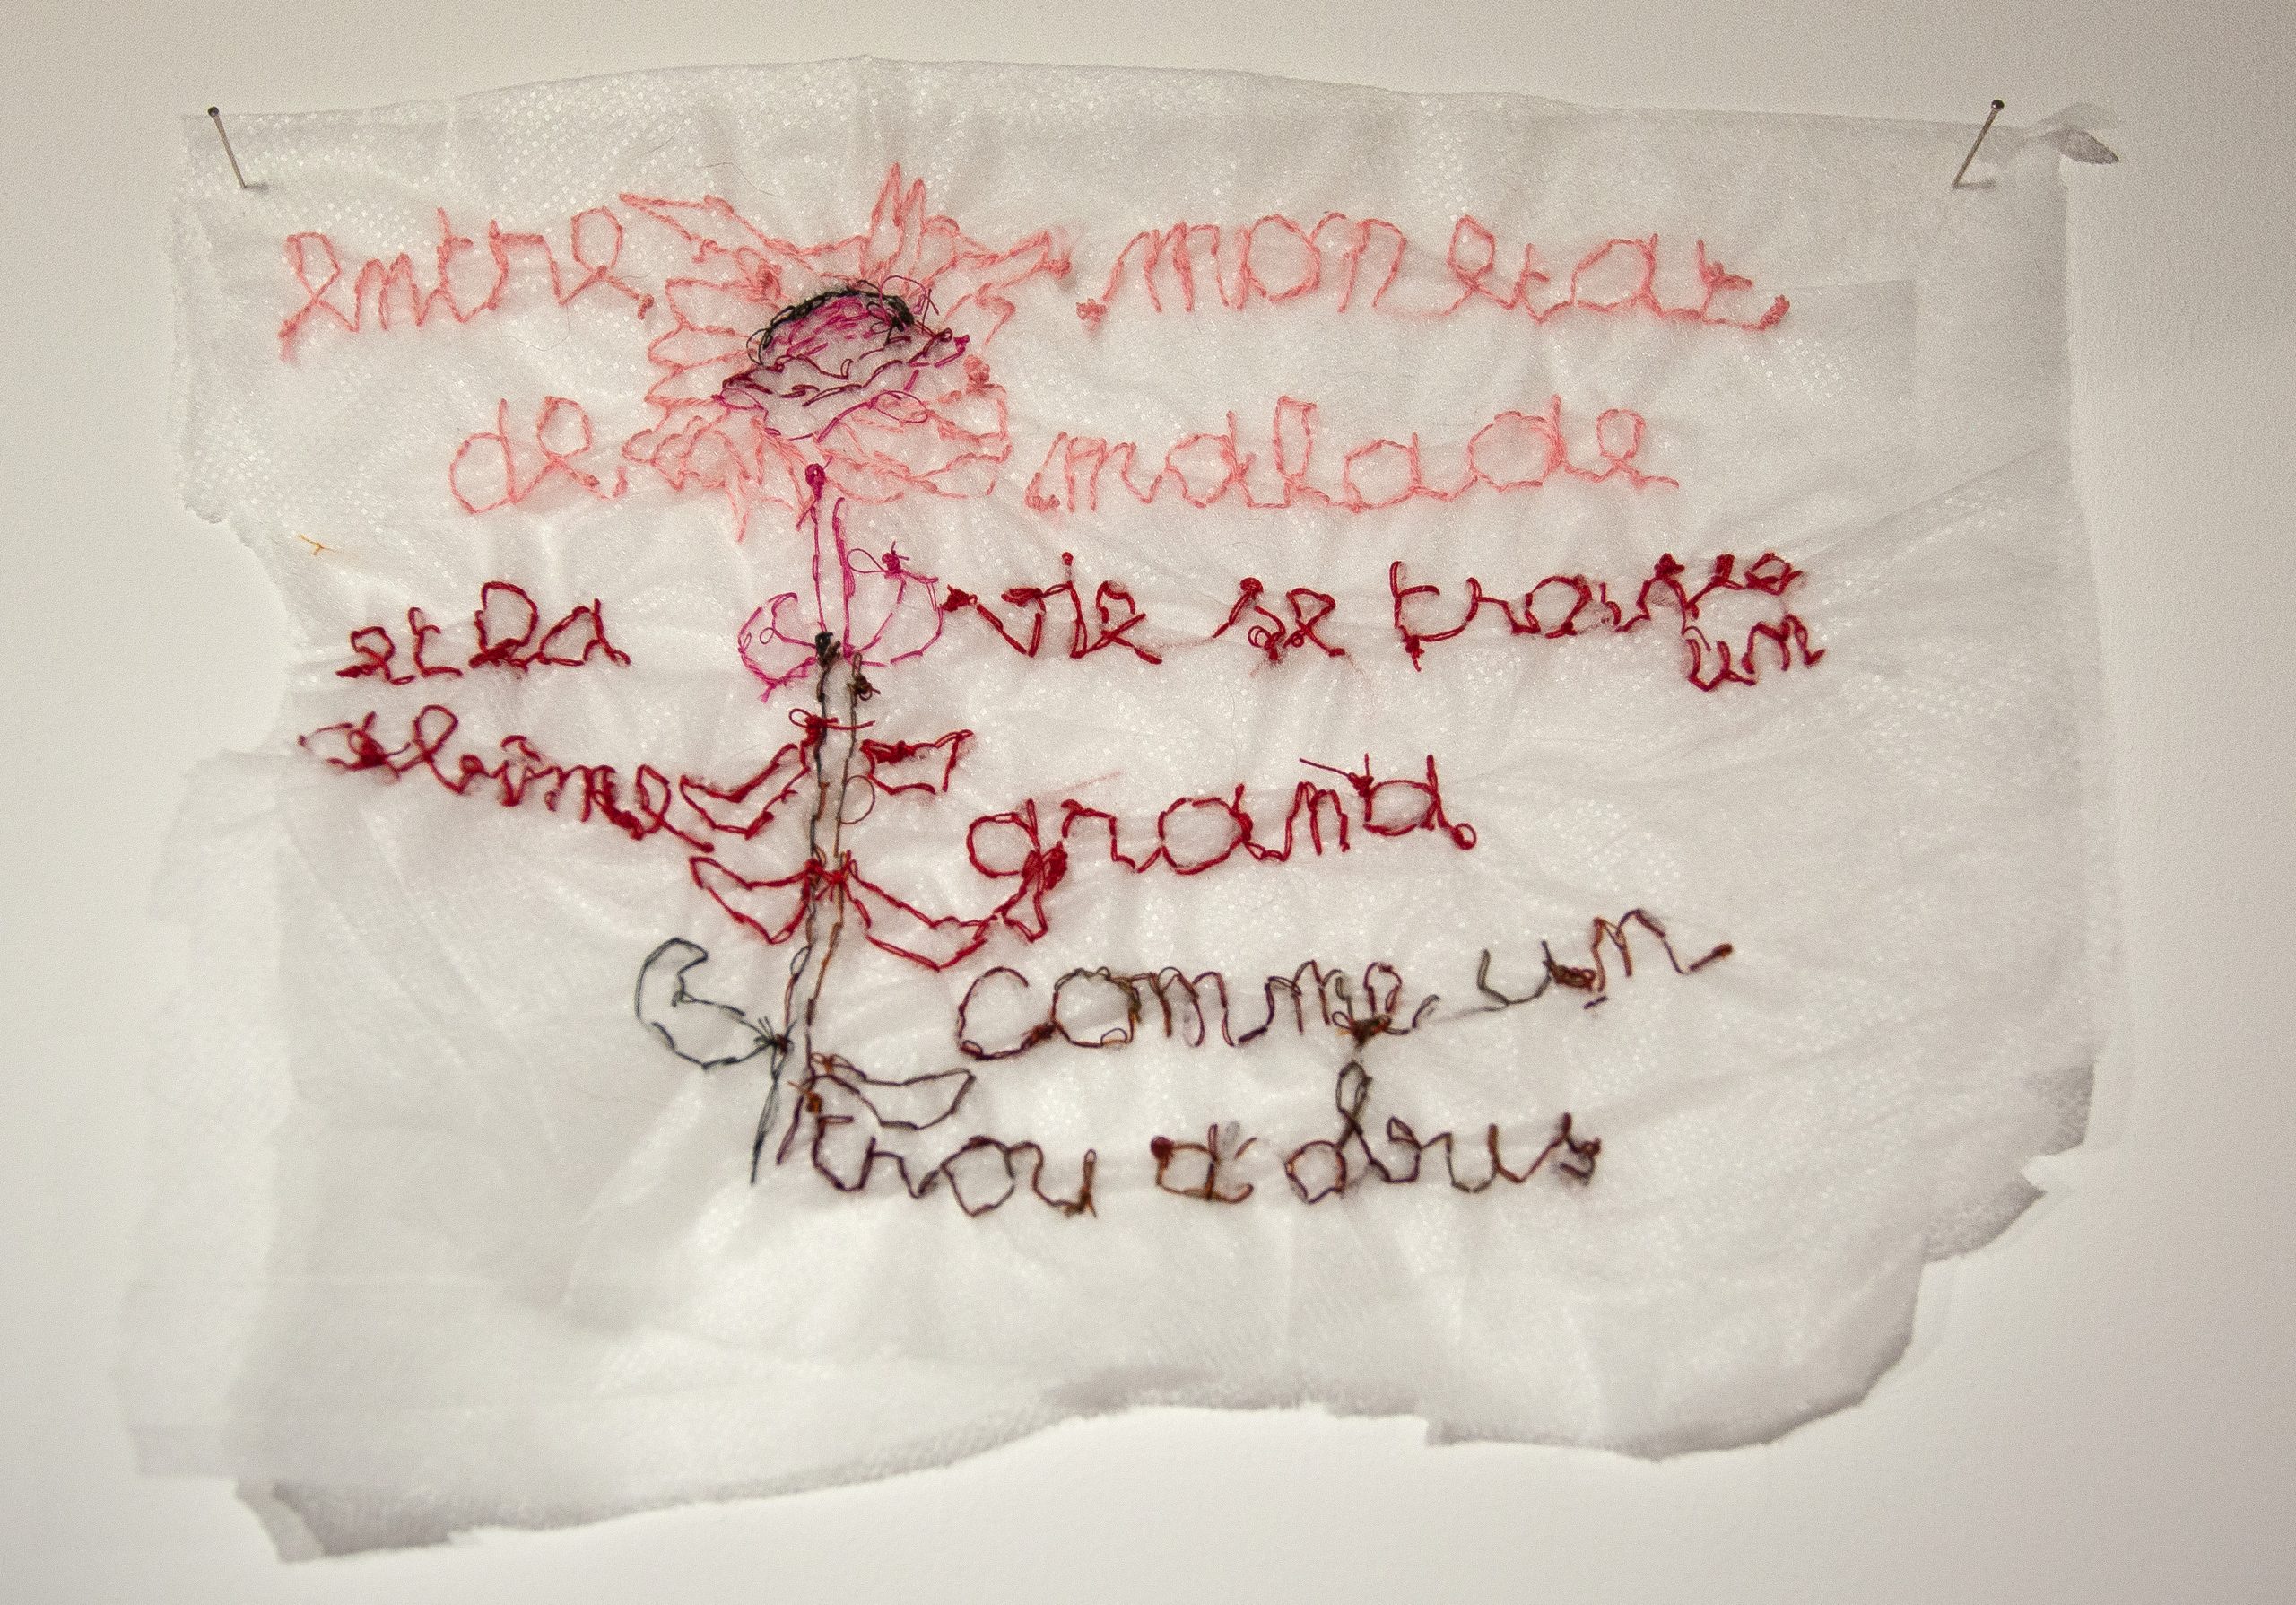 entre mon etat
de malade
et la vie se trouve
un
abîme grand
comme un
trou d'obus